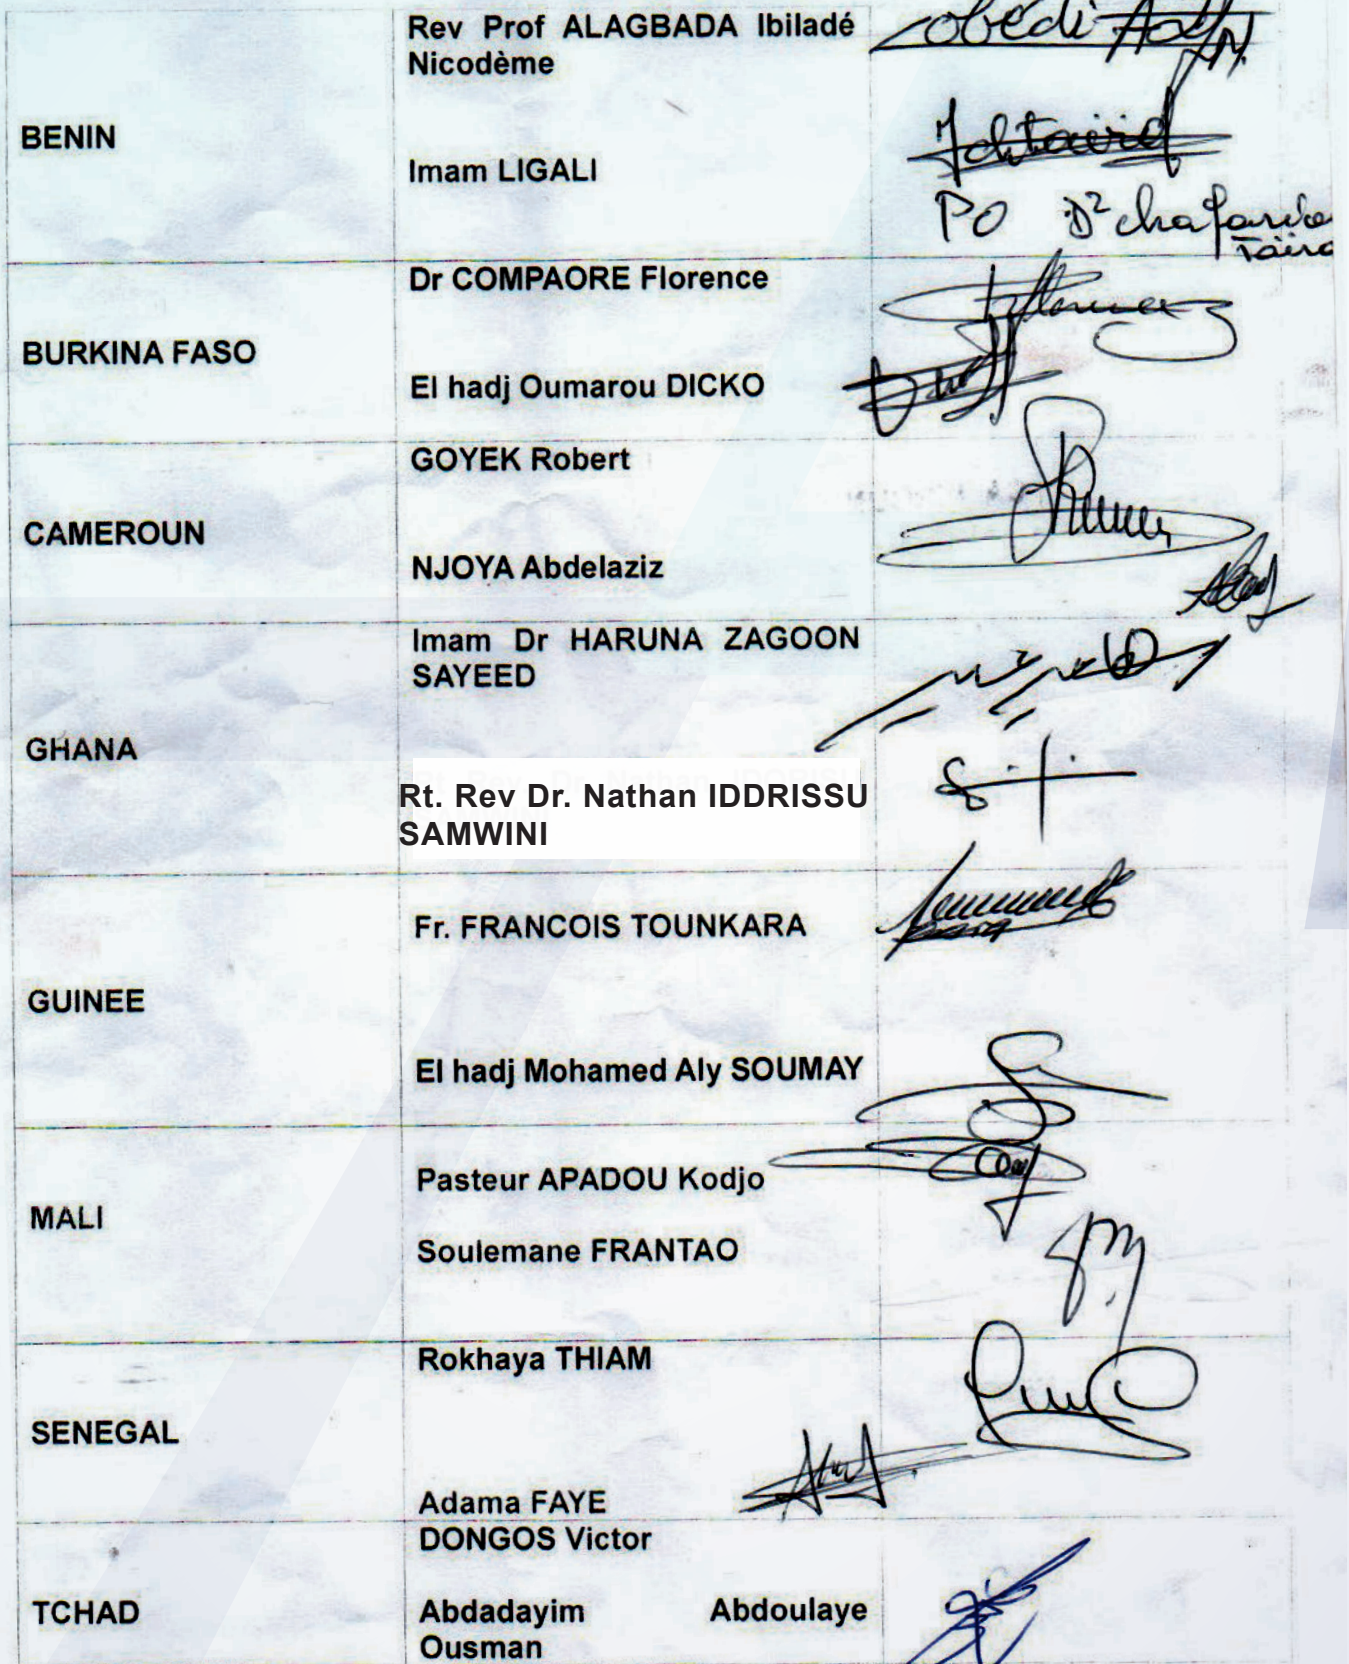 BENIN
Rev Prof ALAGBADA Ibiladé
Nicodème
Imam LIGALI
PO
BURKINA FASO
Dr COMPAORE Florence
El hadj Oumarou DICKO
CAMEROUN
GOYEK Robert
NJOYA Abdelaziz
GHANA
Imam Dr HARUNA ZAGOON
SAYEED
Rt. Rev Dr. Nathan IDDRISSU
SAMWINI
GUINEE
Fr. FRANCOIS TOUNKARA
El hadj Mohamed Aly SOUMAY
MALI
Pasteur APADOU Kodjo
Soulemane FRANTAO
SENEGAL
Rokhaya THIAM
Adama FAYE
TCHAD
DONGOS Victor
Abdadayim Abdoulaye
Ousman